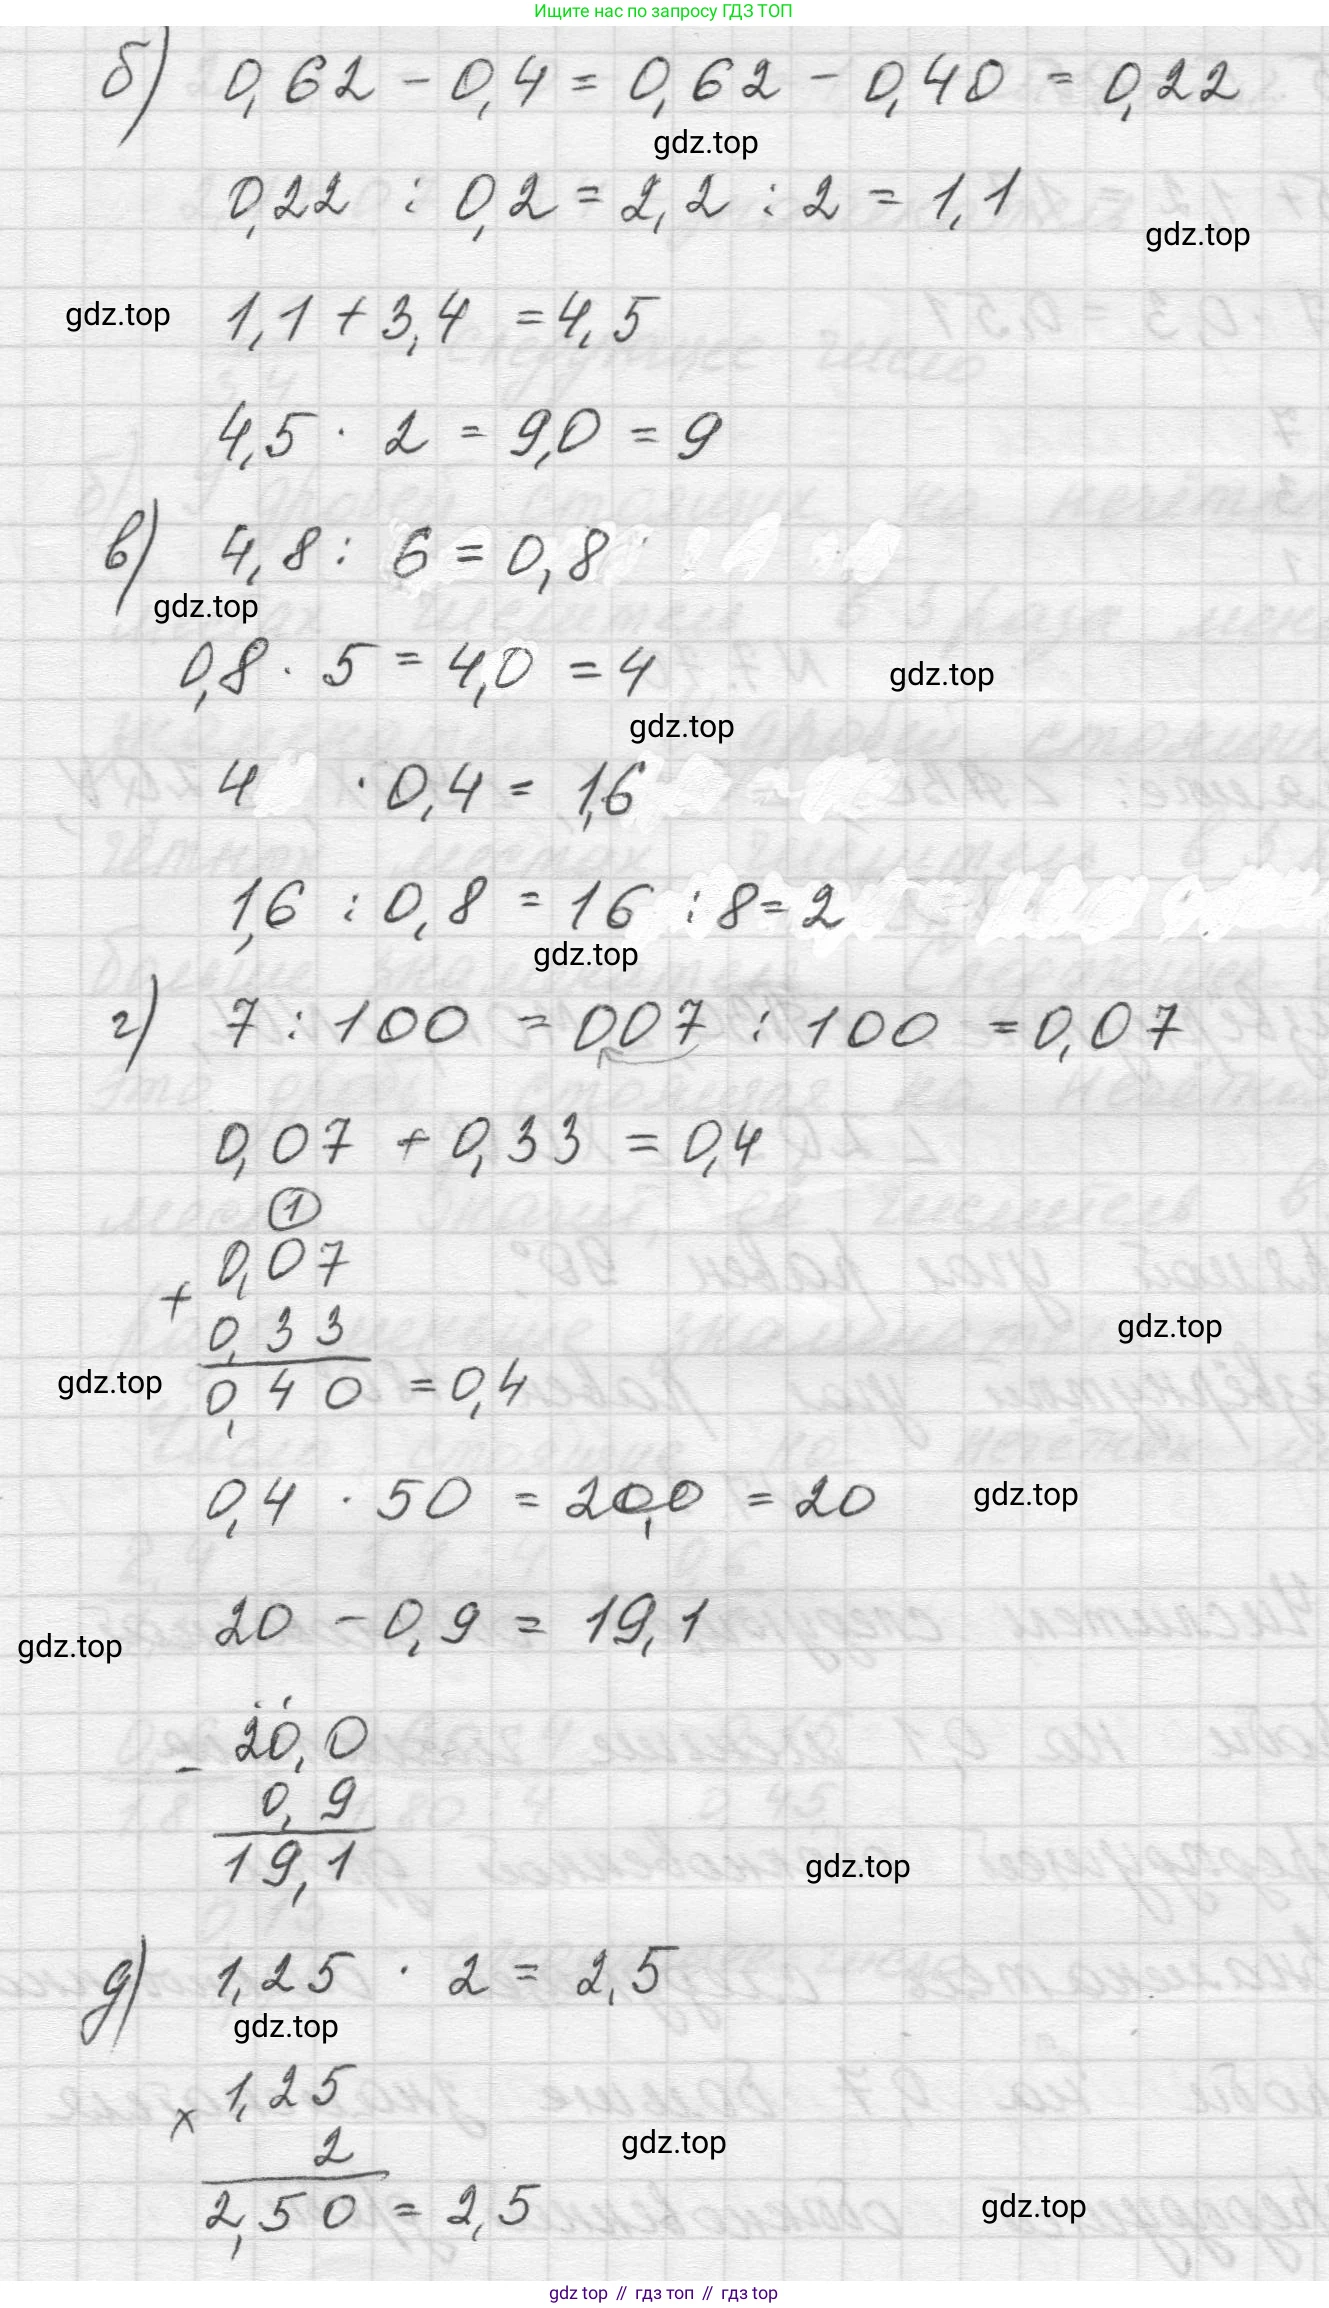 Ищите нас по запросу ГДЗ ТОП
б) 0,62 - 0,4 = 0,62 - 0,40 = 0,22
gdz.top
0,22 : 0,2 = 2,2 : 2 = 1,1
gdz.top
gdz.top
1,1 + 3,4 = 4,5
4,5 · 2 = 9,0 = 9
в) 4,8 : 6 = 0,8
gdz.top
0,8 · 5 = 4,0 = 4
gdz.top
gdz.top
4 · 0,4 = 1,6
1,6 : 0,8 = 16 : 8 = 2
gdz.top
г) 7 : 100 = 007 : 100 = 0,07
0,07 + 0,33 = 0,4
1
0,07
+
0,33
gdz.top
gdz.top
0,40 = 0,4
0,4 · 50 = 20,0 = 20
gdz.top
20 - 0,9 = 19,1
gdz.top
20,0
-
0,9
19,1
gdz.top
д) 1,25 · 2 = 2,5
gdz.top
1,25
×
2
gdz.top
2,50 = 2,5
gdz.top
gdz top // гдз топ // gdz top